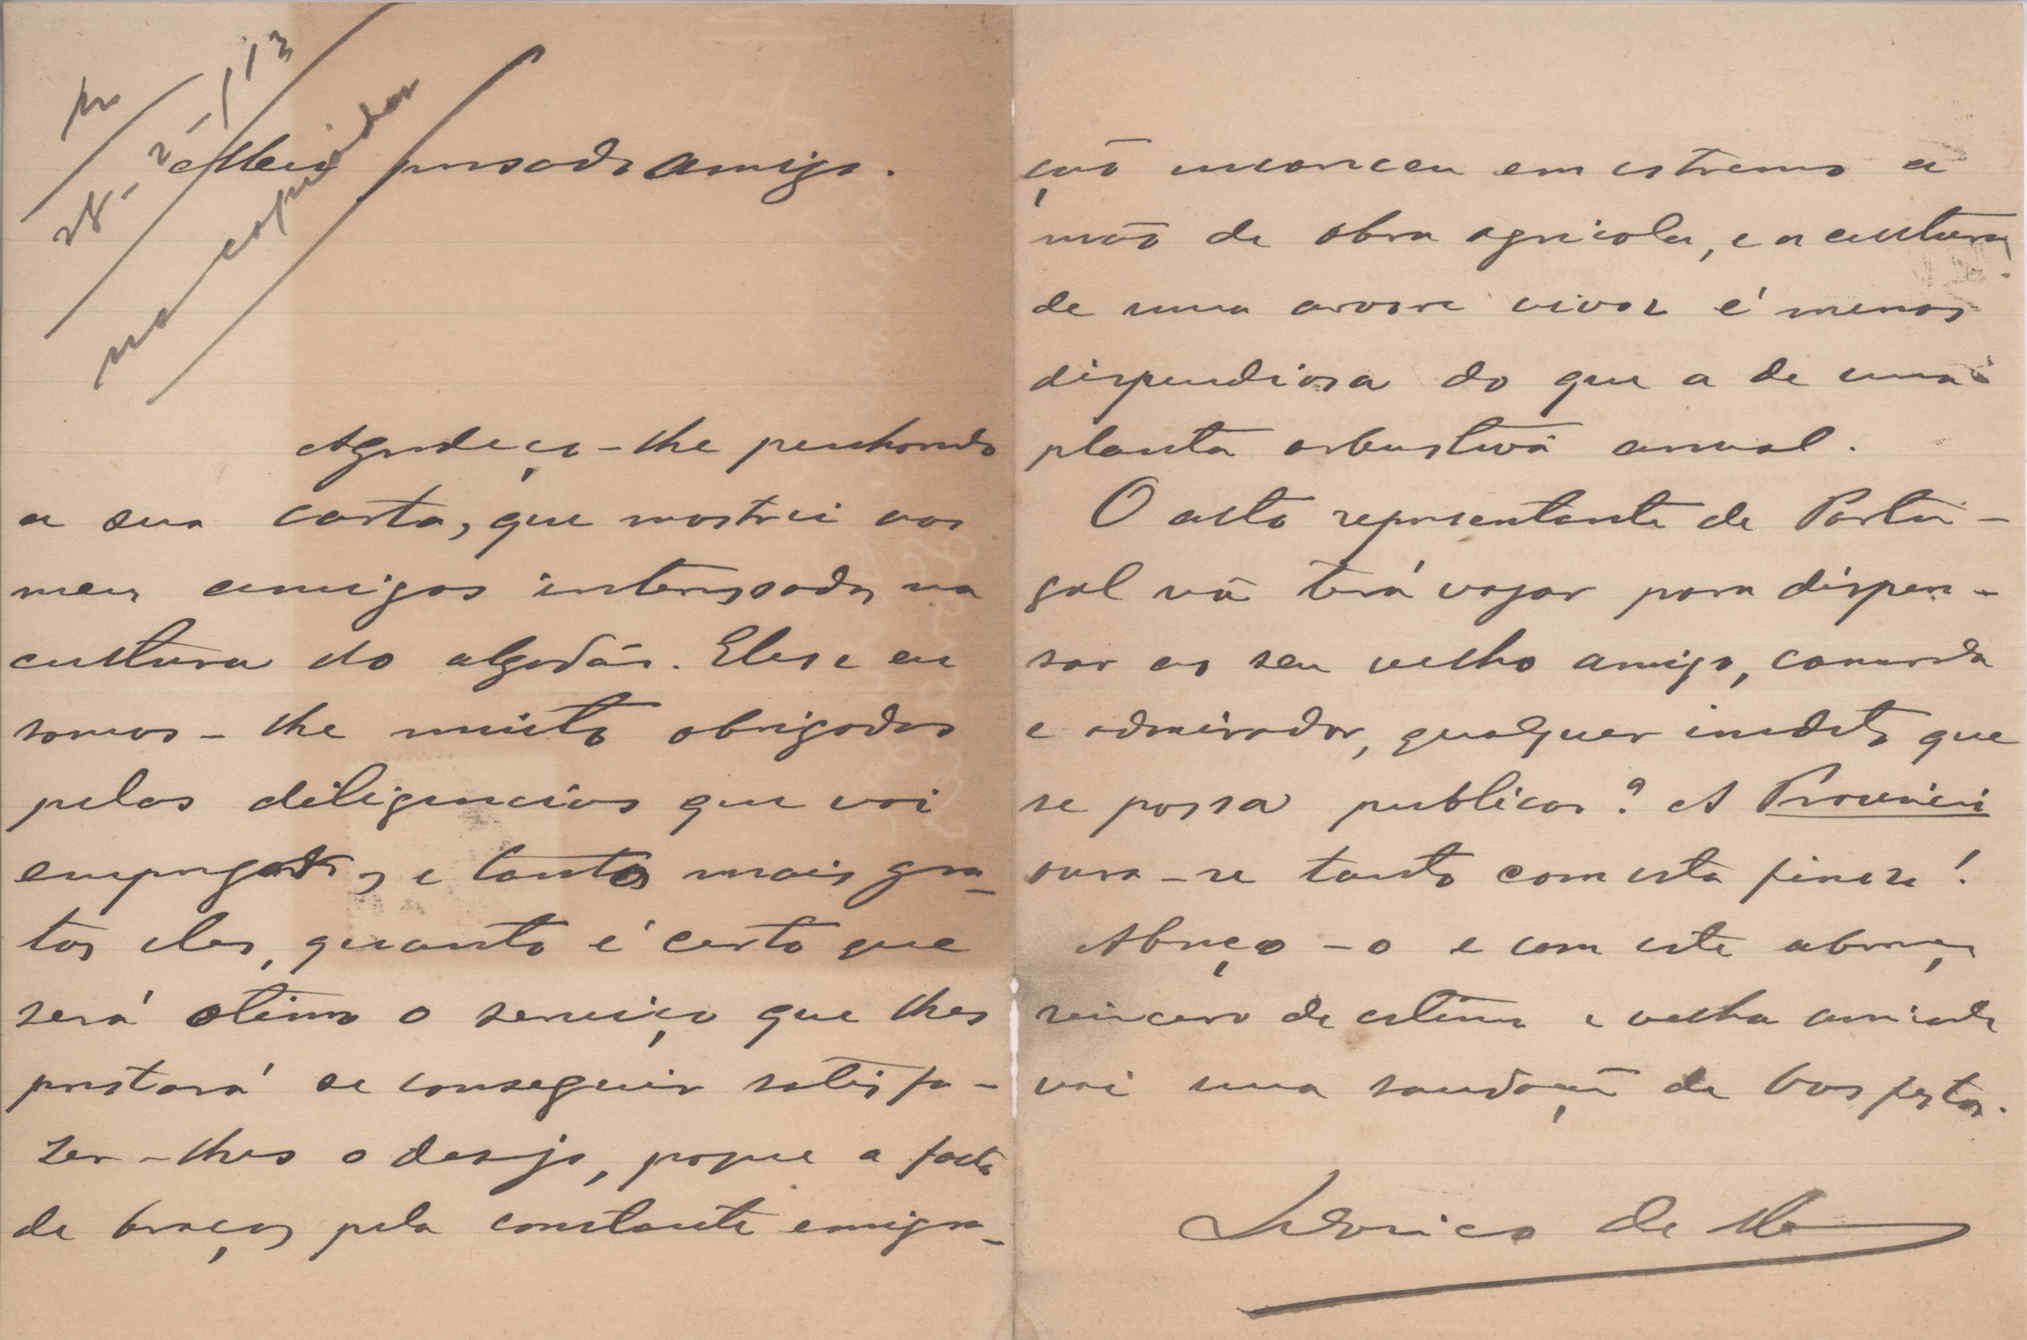 28-2-/13
no copiador
Meu presado amigo.
Agradeço-lhe penhorado
a sua carta, que mostrei aos
meus amigos interessados na
cultura do algodão. Eles e eu
somos-lhe muito obrigados
pelas diligencias que vai
empregar, e tanto mais gra-
tos eles, quanto é certo que
será otimo o serviço que lhes
prestará se conseguir satisfa-
zer-lhes o desejo, porque a falta
de braços pela constante emigra-
ção encareceu em estremo a
mão de obra agricola, e a cultura
de uma arvore vivaz é menos
dispendiosa do que a de uma
planta arbustiva anual.
O alto representante de Portu-
gal não terá vagar para dispen-
sar ao seu velho amigo, camarada
e admirador, qualquer inedito que
se possa publicar? A Provincia
ivra-se tanto com esta fineza!
Abraço-o e com este abraço
sincero de estima e velha amisade
vai uma saudação de boas festas.
de